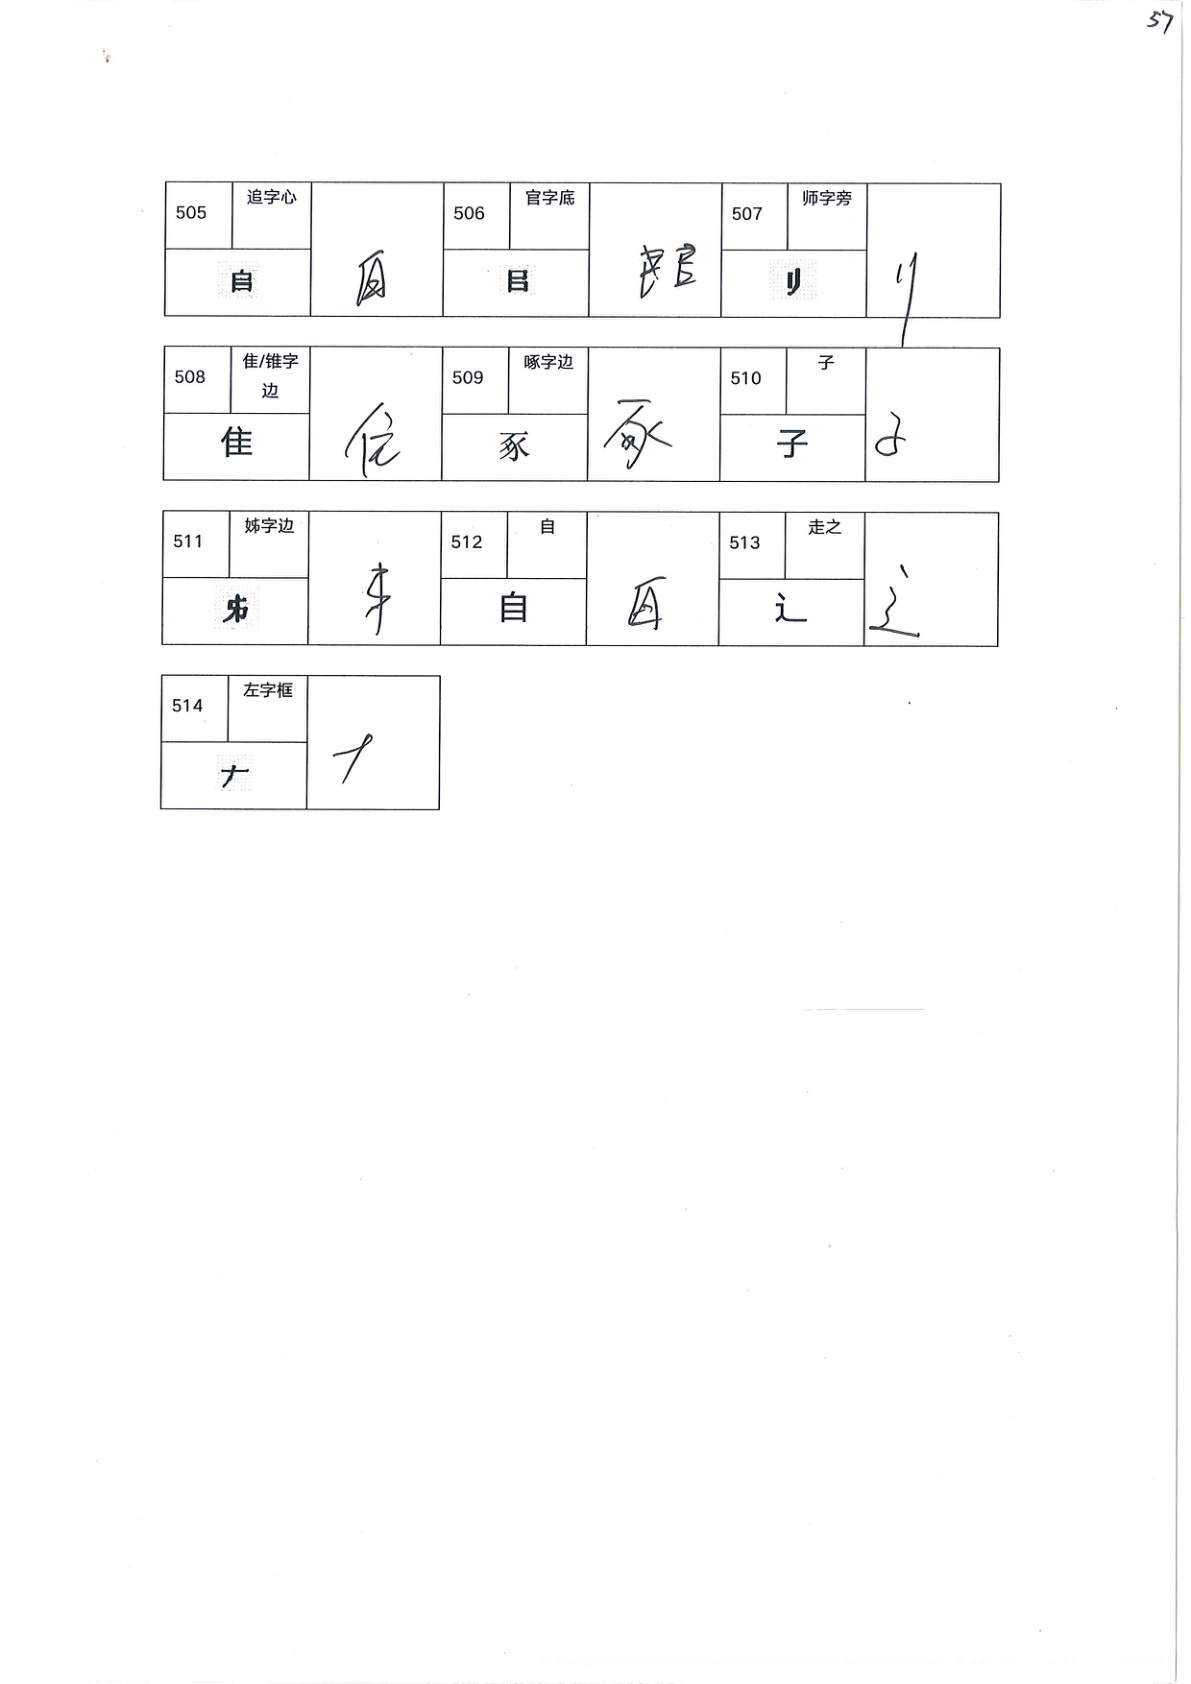 57
505 追字心 𠂤 自
506 官字底 㠯
507 师字旁 刂 刂
508 隹/锥字边 隹 隹
509 啄字边 豖 豖
510 子 子 子
511 姊字边
512 自 自 自
513 走之 辶 辶
514 左字框 𠂇 𠂇